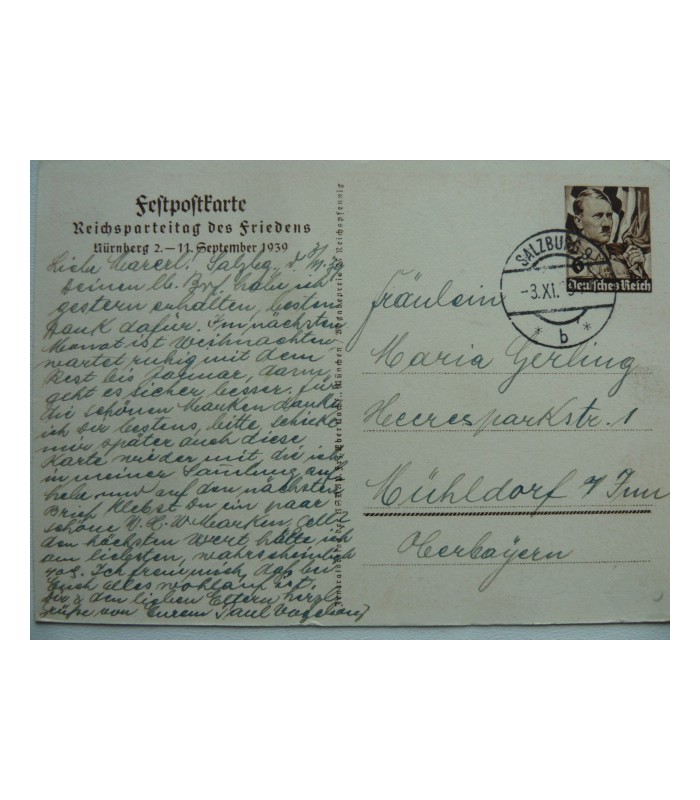 Festpostkarte
Reichsparteitag des Friedens
Nürnberg 2.–11. September 1939
Salzbg.,
Deinen lb. Brf. habe ich
gestern erhalten, besten
Dank dafür. Im nächsten
Monat ist Weihnachten
wartet ruhig mit dem
Rest bis Januar, dann
geht es sicher besser. Für
die schönen Marken danke
ich Dir bestens, bitte, schicke
mir später auch diese
Karte wieder mit die ich
in meiner Sammlung auf
hebe und auf den nächsten
Brief klebst Du ein paar
schöne W.H.W Marken,
den höchsten Wert hätte ich
am liebsten, wahrscheinlich
40₰. Ich freue mich, daß bei
Euch alles wohlauf ist.
Dir & den lieben Eltern herzl.
Grüße von Eurem Paul
München
Reichspfennig
SALZBURG 2
-3.XI.
b
Deutsches Reich
6
Fräulein
Maria Gerling
Heeresparkstr. 1
Mühldorf a/Inn
Oberbayern